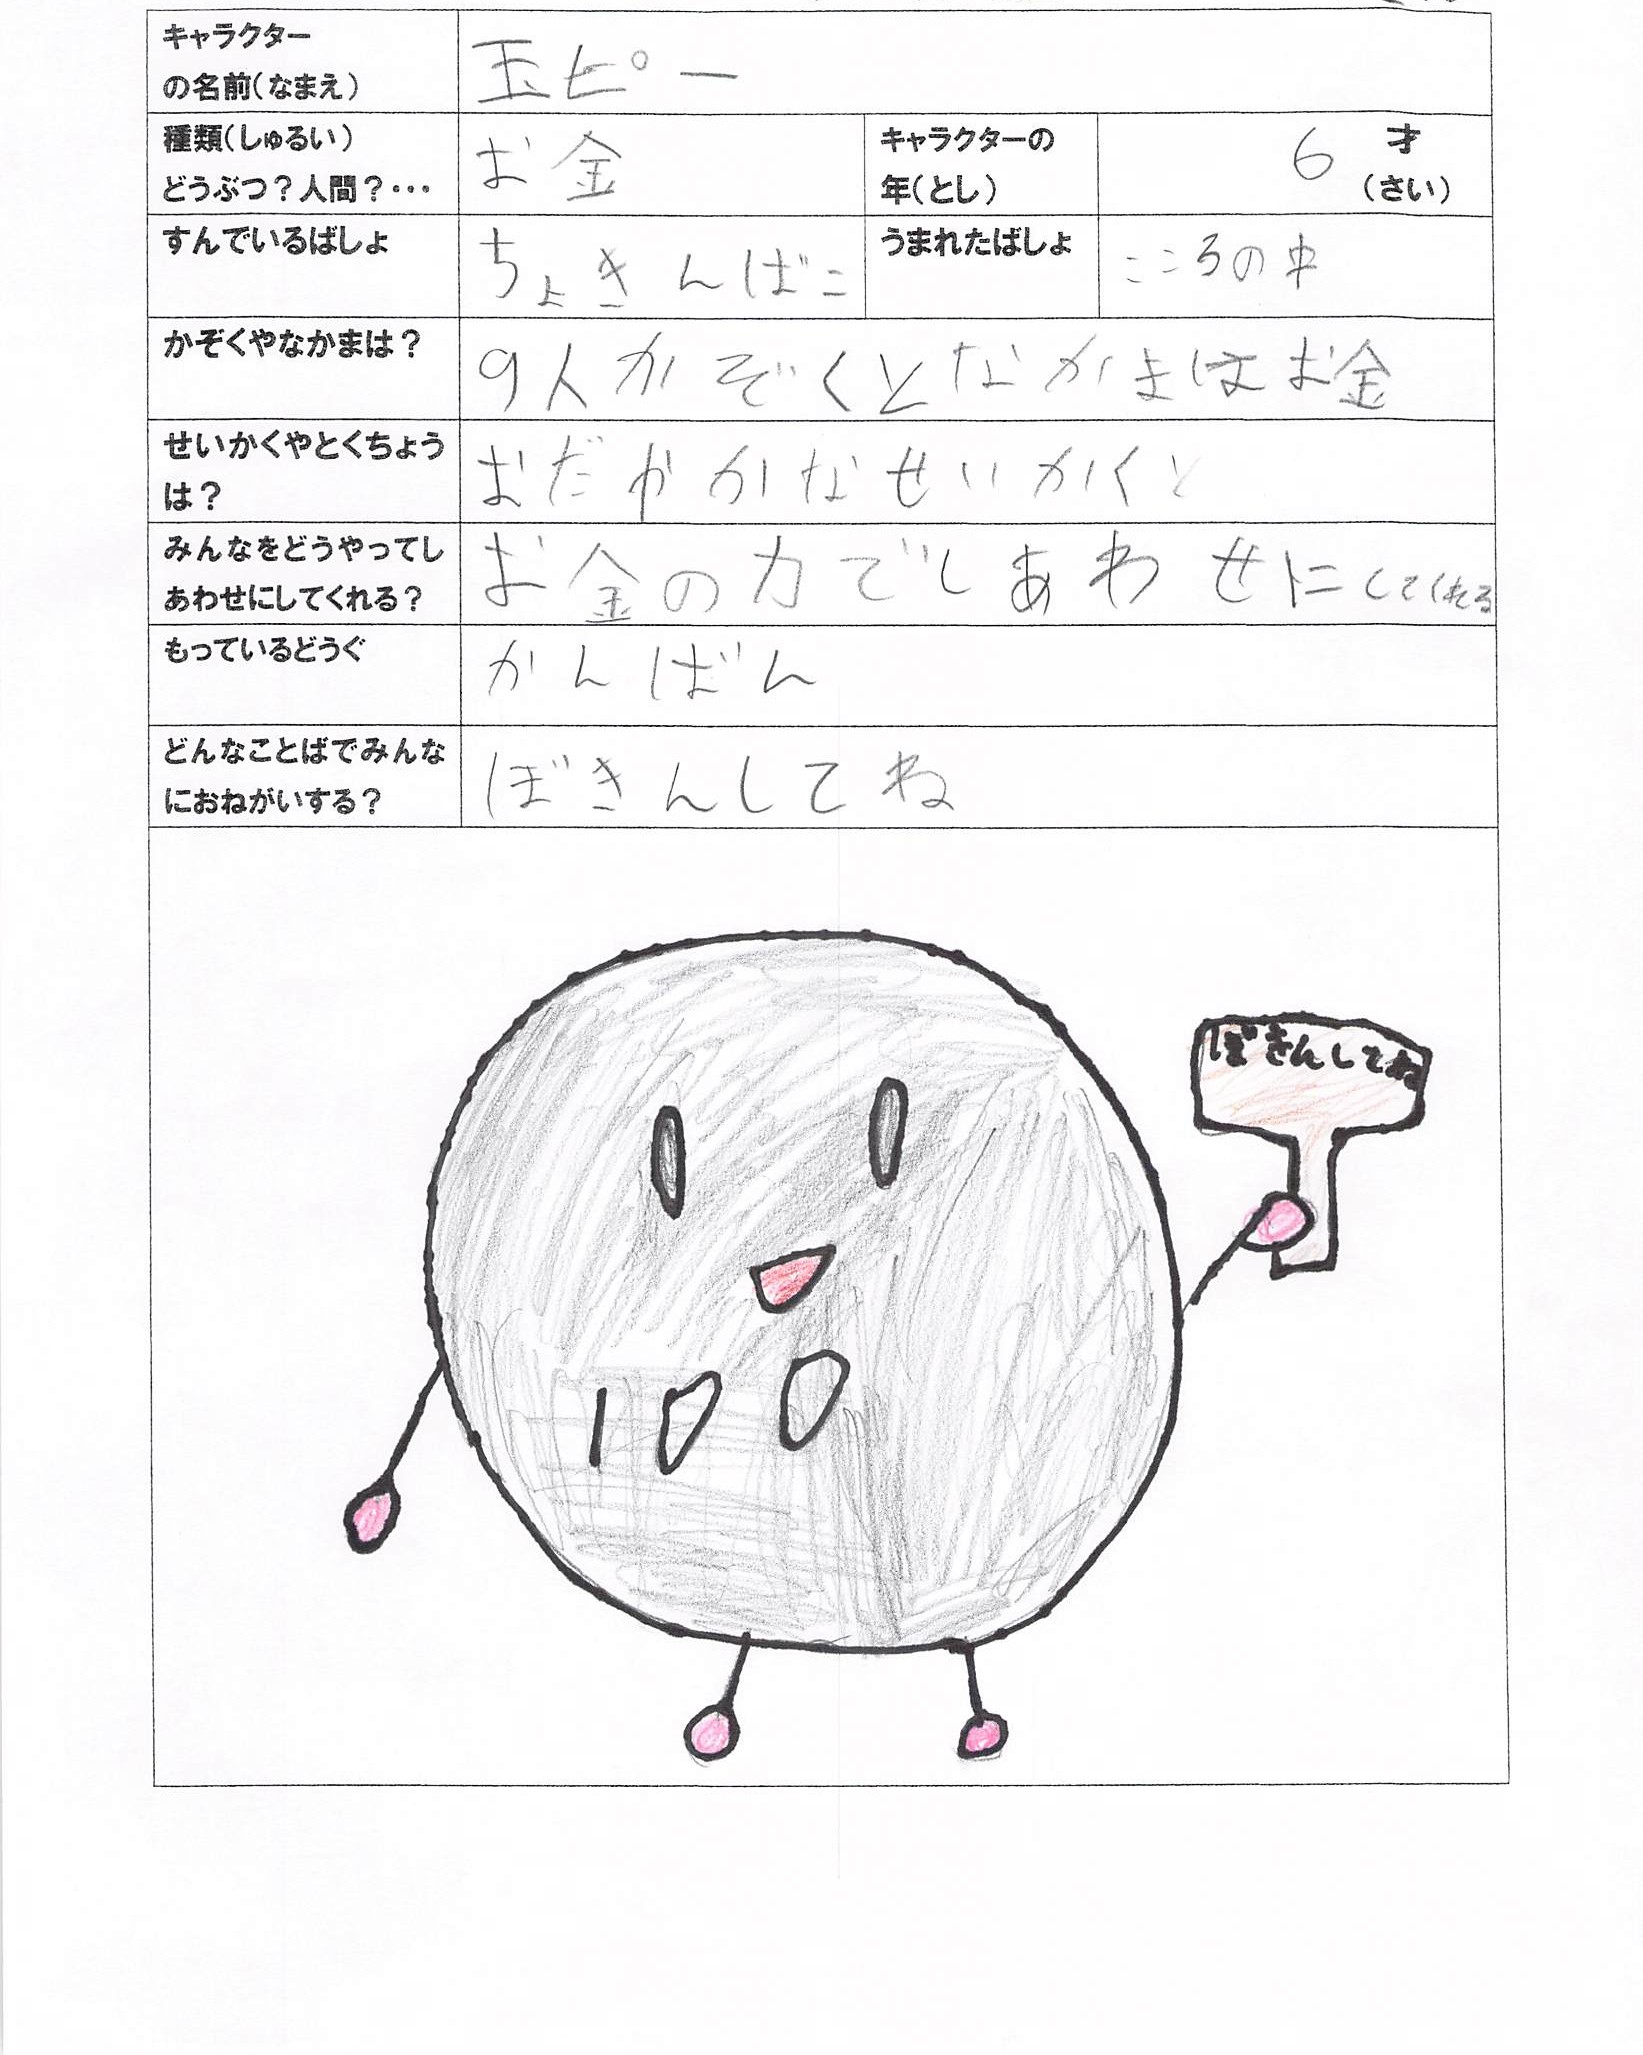 キャラクター
の名前(なまえ)
玉ピー
種類(しゅるい)
どうぶつ?人間?・・・
お金
キャラクターの
年(とし)
6 才
(さい)
すんでいるばしょ
ちょきんばこ
うまれたばしょ
こころの中
かぞくやなかまは?
9人かぞくとなかまはお金
せいかくやとくちょう
は?
おだやかなせいかくと
みんなをどうやってし
あわせにしてくれる?
お金の力でしあわせにしてくれる
もっているどうぐ
かんばん
どんなことばでみんな
におねがいする?
ぼきんしてね
ぼきんしてね
100